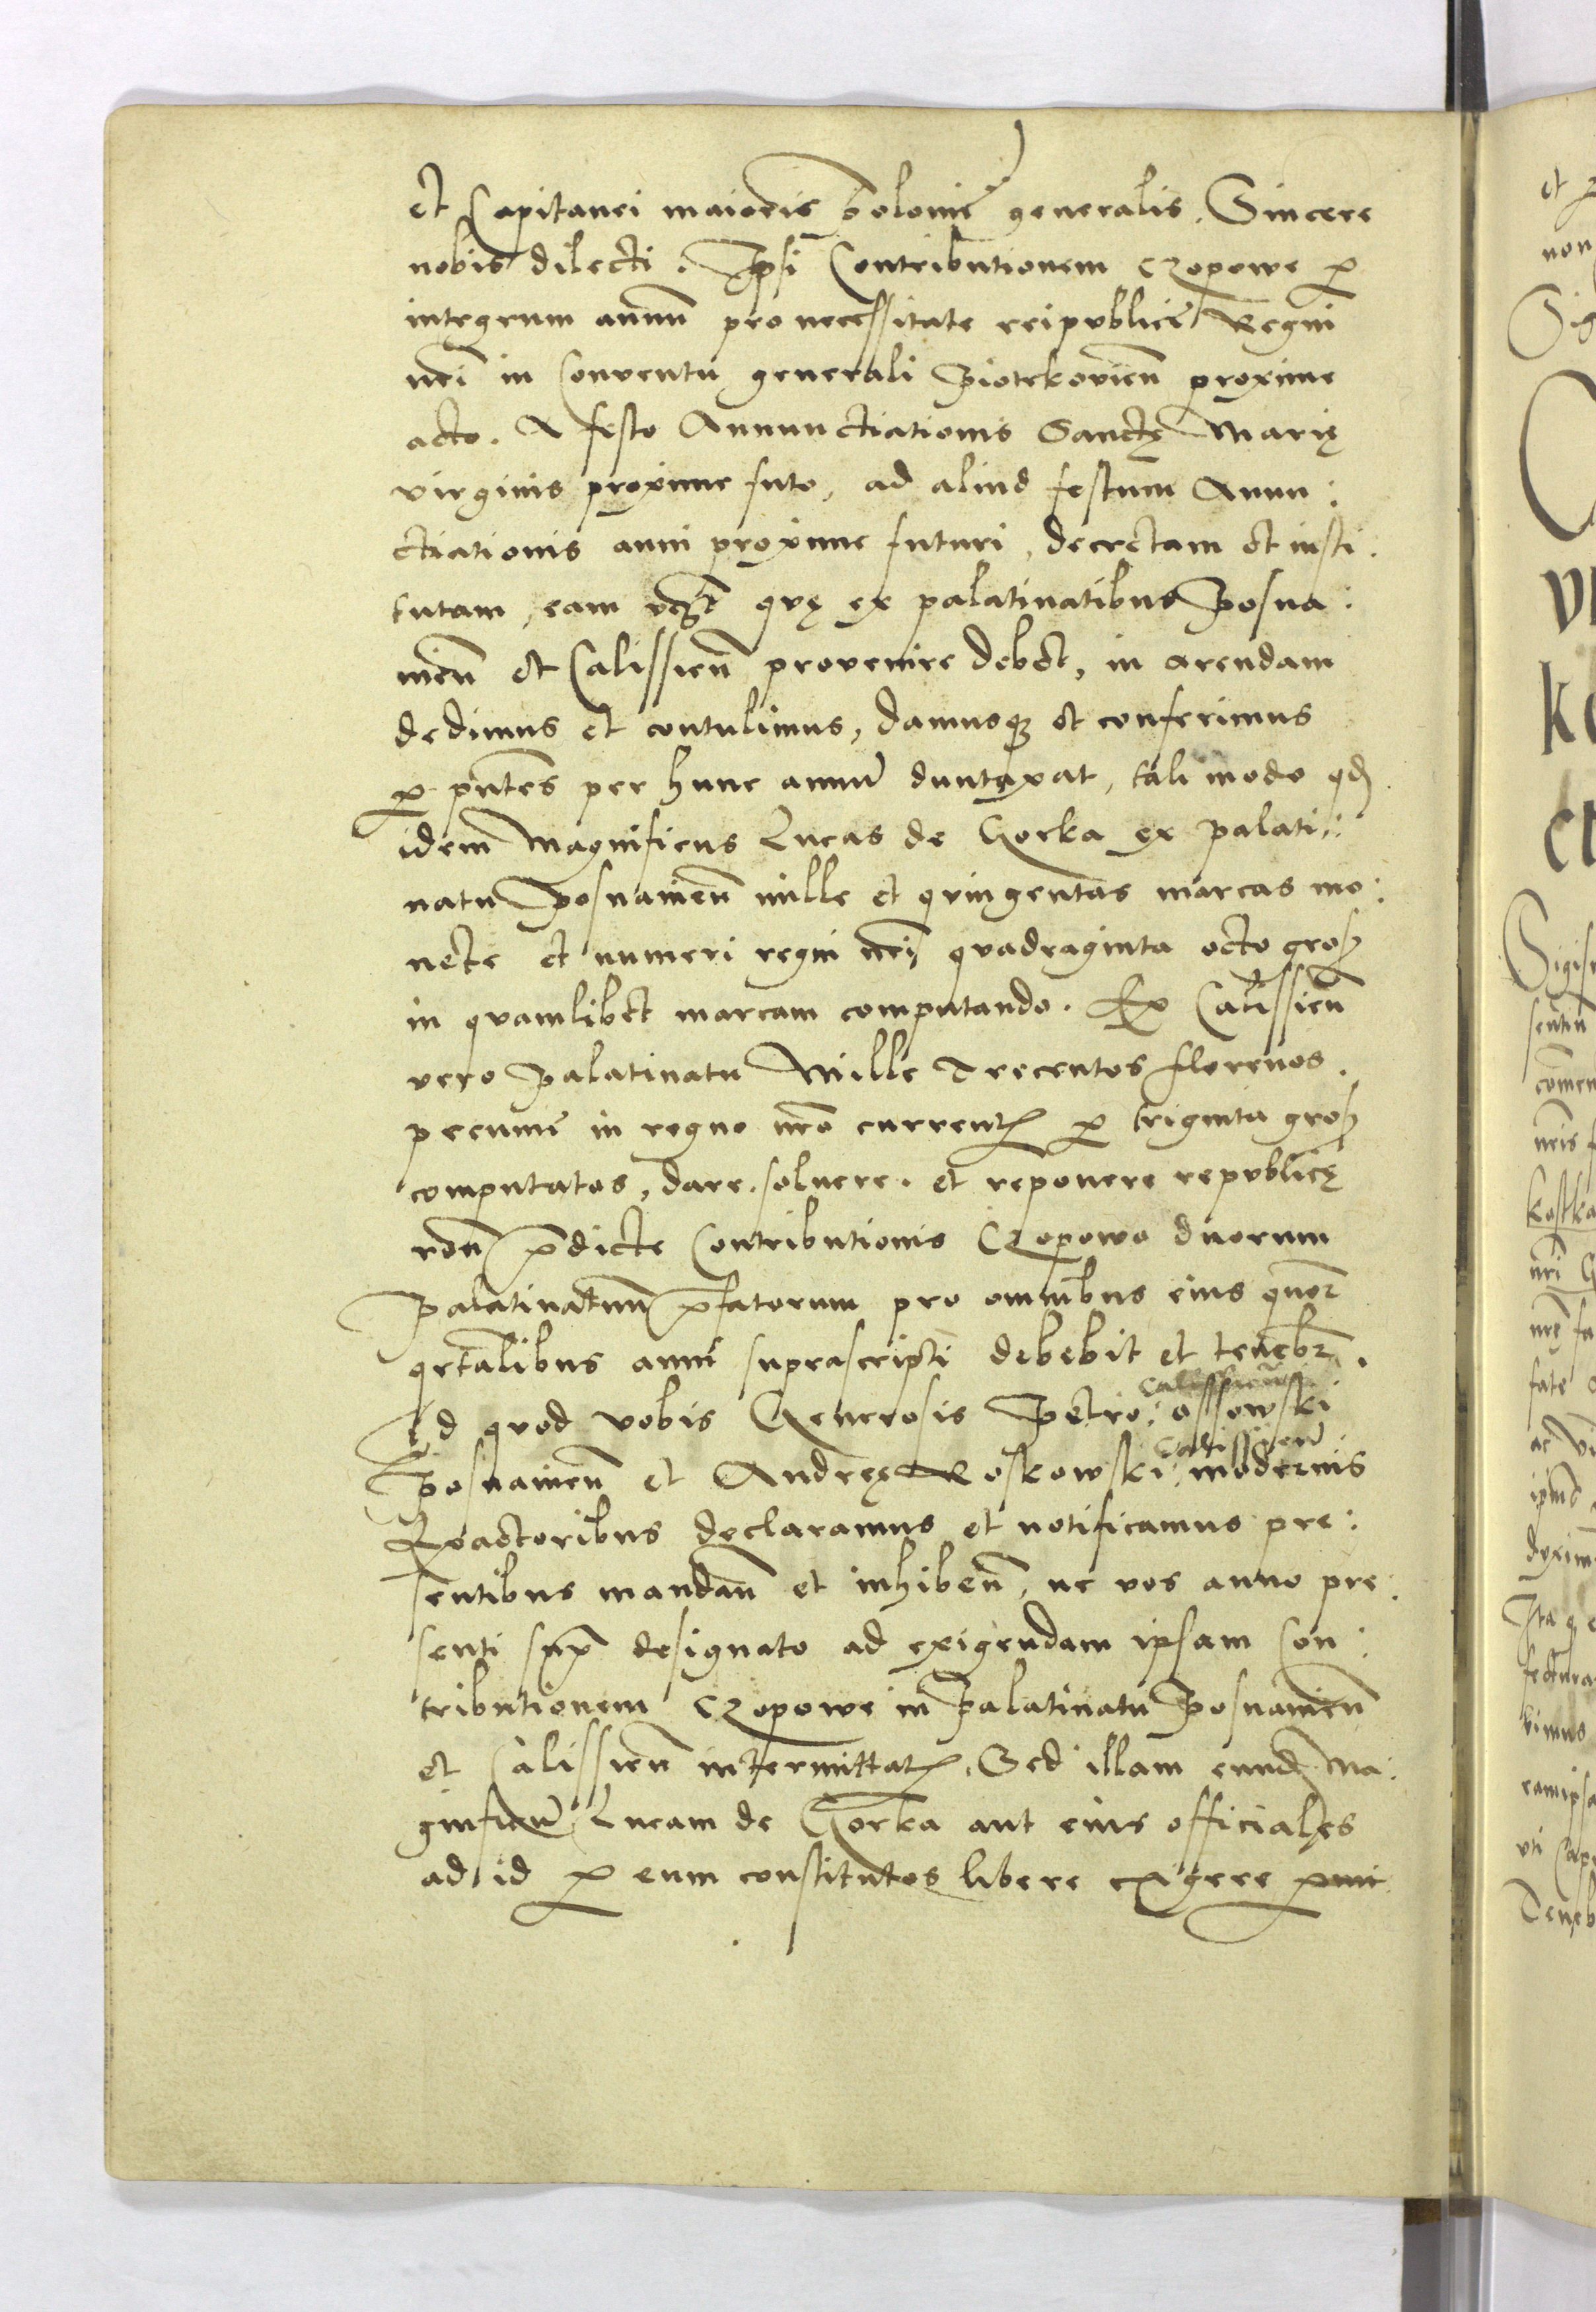 et Capitanei maioris Polonie generalis. Sincere
nobis dilecti. Ipsi Contributionem Czopowe p
integrum annũ pro necessitate reipublice Regni
nrĩ in Conventu generali Piotrkovieñ proxime
acto. A festo Annunctiationis Sanctę Marię
virginis proxime futo, ad aliud festum Annun:
ctiationis anni proxime futuri, decretam et insti:
tutam, eam quę ex palatinatibus Posna:
nieñ et Calissieñ provenire debet, in arendam
dedimus et contulimus, damusq et conferimus
p pñtes per hunc annũ duntaxat, tali modo qd
idem Magnificus Lucas de Gorka ex palati:
natu Posnanieñ mille et quingentas marcas mo:
nete et numeri regni nrĩ quadraginta octo gros
in quamlibet marcam computando. Ex Calissieñ
vero Palatinatu Mille Trecentos florenos
pecunie in regno nrõ current p triginta gros
computatos, dare. soluere. et reponere republicę
rõn pdicte Contributionis Czopowo duorum
Palatinatuũ pfatorum pro omnibus eius quor
qrtalibus anni suprascripti debebit et tenebr.
Calissieñ
Id quod vobis Generosis Petro: ossowski
Calissieñ
Posnanieñ et Andreę Roskowski: modernis
Exactoribus declaramus et notificamus pre:
sentibus mandañ et inhibeñ, ne vos anno pre:
senti sup designato ad exigendam ipsam Con:
tributionem Czopowe in Palatinatu Posnanieñ
et Calissieñ intermittat, Sed illam eund Ma:
gnificũ Lucam de Gorka aut eius officiales
ad id p eum constitutos libere exigere pmit
et
non
Sig
Sigis
sentiu
comen
nris
kostka
nri
nrę
fate
ac
ipm
duxim
Ita q
fectura
simus
eamipsa
uti Cap
Teneb